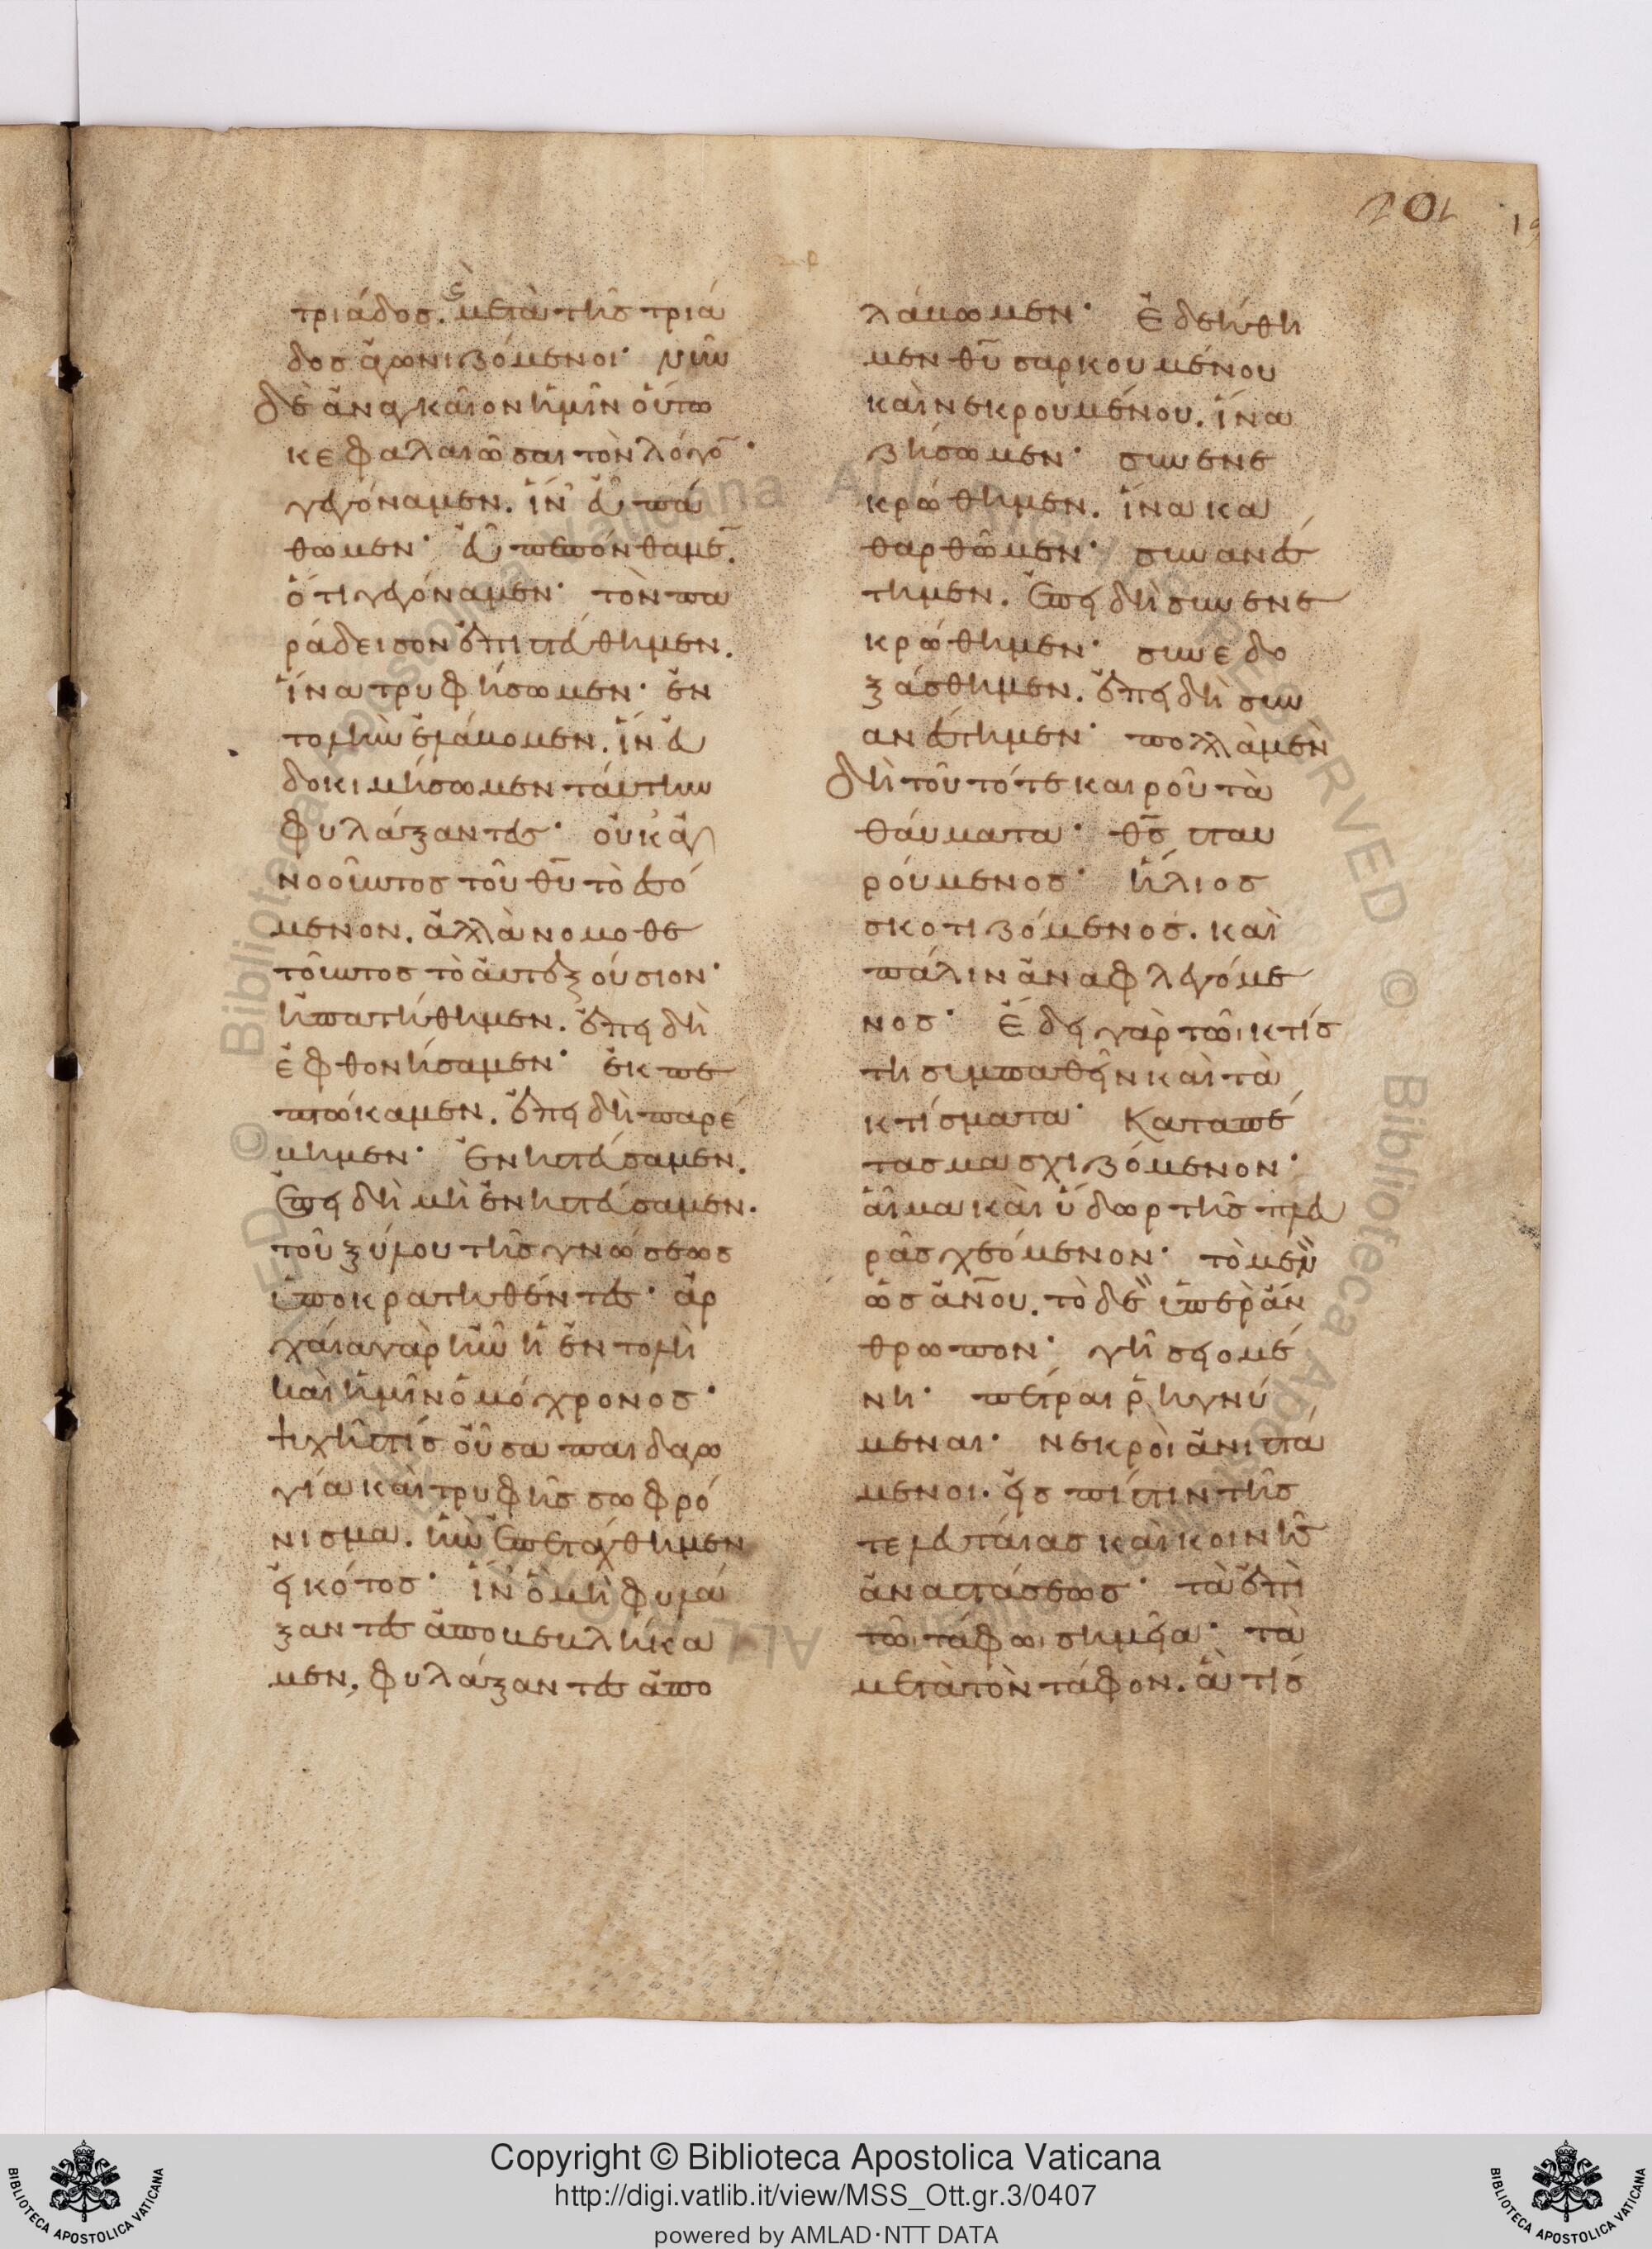 201
τριάδος. ἐὰν μετὰ τῆς τριά
δος ἀγωνιζόμενοι· νῦν
δὲ ἀναγκαῖον ἡμῖν οὕτω
κεφαλαιῶσαι τὸν λόγο̅·
γεγόναμεν. ἵν' εὖ πά
θωμεν· εὖ πεπόνθαμε̅.
ὅτι γεγόναμεν· τὸν πα
ράδεισον ἐπιστεύθημεν.
ἵνα τρυφήσωμεν· ἐν
τολὴν ἐλάβομεν. ἵν' εὐ
δοκιμήσωμεν ταύτην
φυλάξαντες· οὐκ ἀγ
νοοῦντος τοῦ θ̅υ̅ τὸ ἐσό
μενον. ἀλλὰ νομοθε
τοῦντος τὸ αὐτεξούσιον·
ἠπατήθημεν. ἐπειδὴ
ἐφθονήσαμεν· ἐκπε
πτώκαμεν. ἐπειδὴ παρέ
βημεν· ἐνηστεύσαμεν.
ἐπειδὴ μὴ ἐνηστεύσαμεν.
τοῦ ξύλου τῆς γνώσεως
ὑποκρατηθέντες· ἀρ
χαία γὰρ ἦν ἡ ἐντολὴ
καὶ ἡμῖν ὁμόχρονος·
ψυχῆς τίς οὖσα παιδαγω
γία καὶ τρυφῆς σωφρό
νισμα. ἣν ἐπετάχθημεν
εἰκότος· ἵν' ὃ μὴ φυλά
ξαντες ἀποβεβλήκα
μεν, φυλάξαντες ἀπο
λάβωμεν· ἐδεήθη
μεν θ̅υ̅ σαρκουμένου
καὶ νεκρουμένου. ἵνα
ζήσωμεν· συνενε
κρώθημεν. ἵνα κα
θαρθῶμεν· συνανέσ
τημεν. ἐπειδὴ συνενε
κρώθημεν· συνεδο
ξάσθημεν. ἐπειδὴ συν
ανέστημεν· πολλὰ μὲν
δὴ τοῦ τότε καιροῦ τὰ
θαύματα· θ̅ς̅ σταυ
ρούμενος· ἥλιος
σκοτιζόμενος. καὶ
πάλιν ἀναφλεγόμε
νος· ἔδει γὰρ τῶι κτίσ
τη συμπαθεῖν καὶ τὰ
κτίσματα· Καταπέ
τασμα σχιζόμενον·
αἷμα καὶ ὕδωρ τῆς πλευ
ρᾶς χεόμενον· τὸ μὲν
ὡς ἀν̅ου. τὸ δὲ ὑπὲρ ἄν
θρωπον· γῆ σειομέ
νη· πέτραι ῥηγνύ
μεναι· νεκροὶ ἀνιστά
μενοι. εἰς πίστιν τῆς
τελευταίας καὶ κοινῆς
ἀναστάσεως· τὰ ἐπὶ
τῶι τάφωι σημεῖα· τὰ
μετὰ τὸν τάφον. ἃ τίς
Copyright © Biblioteca Apostolica Vaticana
http://digi.vatlib.it/view/MSS_Ott.gr.3/0407
powered by AMLAD·NTT DATA